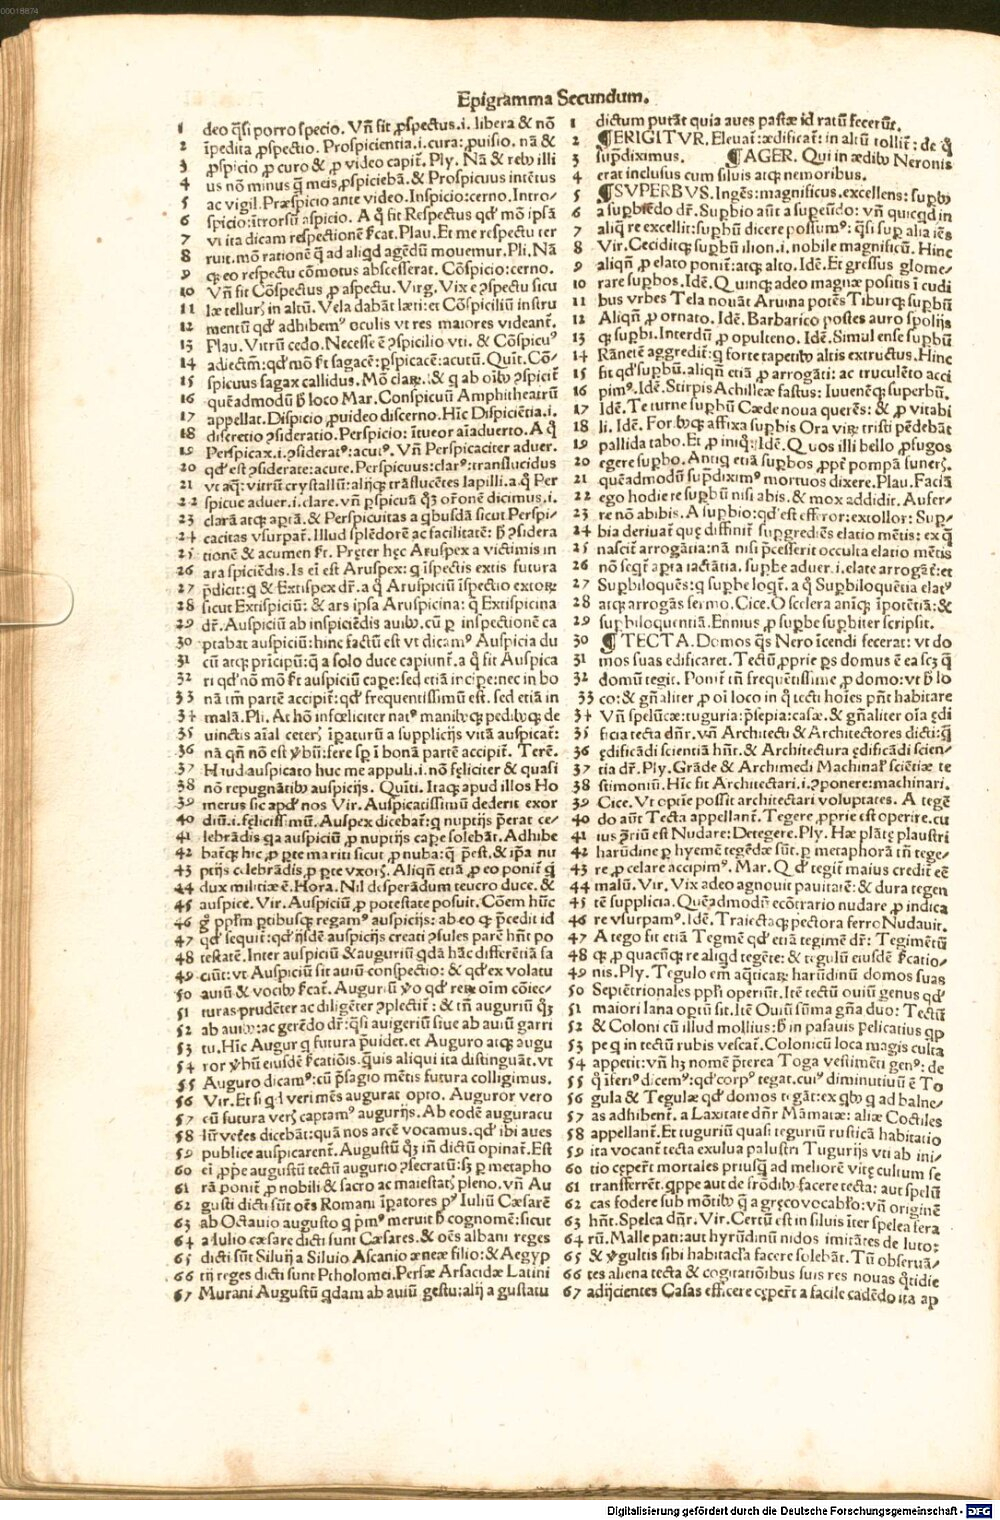 00018874
Epigramma Secundum.
1 deo q̃si porro specio. Vñ fit ꝓspectus.i. libera & nõ
2 ĩpedita ꝓspectio. Prospicientia.i.cura:ꝓuisio. nã &
3 ꝓspicio ꝓ curo & ꝓ video capit̃. Ply. Nã & reb; illi
4 us nõ minus q̃ meis ꝓspiciebã.& Prospicuus intẽtus
5 ac vigil. Præspicio ante video. Inspicio:cerno. Intro/
6 spicio:ĩtrorsũ aspicio. A q̃ fit Respectus qd' mõ ipsã
7 vt ita dicam respectionẽ s̃cat. Plau. Et me respectu ter
8 ruit. mõ rationẽ q̃ ad aliqd agẽdũ mouemur. Pli. Nã
9 qꝫ eo respectu cõmotus abscesserat. Cõspicio:cerno.
10 Vñ fit Cõspectus ꝓ aspectu. Virg. Vix e ꝯspectu sicu
11 læ tellurꝭ in altũ. Vela dabãt læti: et Cõspiciliũ instru
12 mentũ qd' adhibemꝰ oculis vt res maiores videant̃.
13 Plau. Vitrũ cedo. Necesse ẽ ꝯspicilio vti. & Cõspicuꝰ
14 adiectm̃: qd' mõ s̃t sagacẽ: ꝑspicacẽ: acutũ. Quĩt. Cõ/
15 spicuus sagax callidus. Mõ clarꝰ: & q ab oib; ꝯspicit̃
16 quẽadmodũ h̃ loco Mar. Conspicuũ Amphitheatrũ
17 appellat. Dispicio ꝓuideo discerno. Hĩc Dispiciẽtia.i.
18 discretio ꝯsideratio. Perspicio: ĩtueor aĩaduerto. A q̃
19 Perspicax.i.ꝯsideratꝰ:acutꝰ. Vñ Perspicaciter aduer.
20 qd' est ꝯsiderate: acute. Perspicuus: clarꝰ: translucidus
21 vt aq̃: vitrũ crystallũ: alijqꝫ trãslucẽtes lapilli. a q̃ Per
22 spicue aduer.i.clare. vñ ꝑspicuã q̃ꝫ orõnẽ dicimus.i.
23 clarã atqꝫ aptã. & Perspicuitas a qbusdã sicut Perspi/
24 cacitas vsurpat̃. Illud splẽdorẽ ac facilitatẽ: h̃ ꝯsidera
25 tionẽ & acumen s̃t. Pręter hęc Aruspex a victimis in
26 ara spiciẽdis. Is ei est Aruspex: q ĩspectis extis futura
27 p̃dicit: q & Extispex dr̃. a q̃ Aruspiciũ ĩspectio extorꝝ
28 sicut Extispiciũ: & ars ipsa Aruspicina: q̃ Extispicina
29 dr̃. Auspiciũ ab inspiciẽdis auib;. cũ ꝑ inspectionẽ ca
30 ptabat auspiciũ: hinc factũ est vt dicamꝰ Auspicia du
31 cũ atqꝫ prĩcipũ: q̃ a solo duce capiunt̃. a q̃ fit Auspica
32 ri qd' nõ mõ s̃t auspiciũ capere: sed etiã incipe: nec in bo
33 nã tm̃ partẽ accipit̃: qd' frequentissimũ est. sed etiã in
34 malã. Pli. At hõ infœliciter natꝰ manib;qꝫ pedib;qꝫ de
35 uinctis aĩal ceterꝭ ĩꝑaturũ a supplicijs vitã auspicat̃:
36 nã qñ nõ est ṽbũ: fere sp̃ ĩ bonã partẽ accipit̃. Terẽ.
37 Haud auspicato huc me appuli.i. nõ fęliciter & quasi
38 nõ repugnãtib; auspicijs. Quĩti. Itaqꝫ apud illos Ho
39 merus sic apd' nos Vir. Auspicatissimũ dederit exor
40 diũ.i.fęlicissimũ. Auspex dicebat̃: q nuptijs p̃erat ce/
41 lebrãdis qa auspiciũ ꝓ nuptijs capere solebãt. Adhibe
42 bat̃qꝫ hic ꝓ ꝑte mariti sicut ꝓnuba: q̃ p̃est. & ip̃a nu
43 ptijs celebrãdis ꝓ ꝑte vxorꝭ. Aliqñ etiã ꝓ eo ponit̃ q̃
44 dux militiæ ẽ. Hora. Nil desperãdum teucro duce. &
45 auspice. Vir. Auspiciũ ꝓ potestate posuit. Cõem hũc
46 g̃ pp̃lm ꝑtibusqꝫ regamꝰ auspicijs: ab eo qꝫ p̃cedit id
47 qd' sequit̃: qd' ijsdẽ auspicijs creati ꝯsules parẽ hñt po
48 testatẽ. Inter auspiciũ & auguriũ qdã hãc differẽtiã fa
49 ciũt: vt Auspiciũ sit auiũ conspectio: & qd' ex volatu
50 auiũ & vocib; s̃cat̃. Auguriũ ṽo qd' rerꝝ oĩm cõiec/
51 turas prudẽter ac diligẽter ꝯplectit̃: & tñ auguriũ q̃ꝫ
52 ab auib;: ac gerẽdo dr̃: q̃si auigeriũ siue ab auiũ garri
53 tu. Hĩc Augur q futura p̃uidet. et Auguro atqꝫ augu
54 ror ṽbũ eiusdẽ s̃catiõis. q̃uis aliqui ita distinguãt. vt
55 Auguro dicamꝰ: cũ p̃sagio mẽtis futura colligimus.
56 Vir. Et si qd veri mẽs augurat opto. Auguror vero
57 cũ futura verꝭ captamꝰ augurijs. Ab eodẽ auguracu
58 lũ vetẽs dicebãt: quã nos arcẽ vocamus. qd' ibi aues
59 publice auspicarent̃. Augustũ q̃ꝫ iñ dictũ opinat̃. Est
60 ei ꝓp̃e augustũ tectũ augurio ꝯsecratũ: sꝫ ꝑ metapho
61 rã ponit̃ ꝓ nobili & sacro ac maiestatꝭ pleno. vñ Au
62 gusti dicti sũt oẽs Romani ĩꝑatores pꝰ Iuliũ Cæsarẽ
63 ab Octauio augusto q p̃mꝰ meruit h̃ cognomẽ: sicut
64 a Iulio cæsare dicti sunt Cæsares. & oẽs albani reges
65 dicti sũt Siluij a Siluio Ascanio æneæ filio: & Aegyp
66 tij reges dicti sunt Ptholomei. Persæ Arsacidæ Latini
67 Murani Augustũ qdam ab auiũ gestu: alij a gustatu
1 dictum putãt quia aues pastæ id ratũ fecerũt.
2 ¶ERIGITVR. Eleuat̃: ædificat̃: in altũ tollit̃: de q̃
3 sup̃diximus. ¶AGER. Qui in ædib; Neronis
4 erat inclusus cum siluis atqꝫ nemoribus.
5 ¶SVPERBVS. Ingẽs: magnificus. excellens: supb;
6 a supbiẽdo dr̃. Supbio aũt a supeũdo: vñ quicqd in
7 aliq̃ re excellit: supbũ dicere possumꝰ: q̃si sup alia iẽs
8 Vir. Ceciditqꝫ supbũ ilion.i. nobile magnificũ. Hinc
9 aliqñ ꝓ elato ponit̃: atqꝫ alto. Idẽ. Et gressus glome/
10 rare supbos. Idẽ. Quinqꝫ adeo magnæ positis ĩ cudi
11 bus vrbes Tela nouãt Atuina potẽs Tiburqꝫ supbũ
12 Aliqñ ꝓ ornato. Idẽ. Barbarico postes auro spolijs
13 qꝫ supbi. Interdũ ꝓ opulento. Idẽ. Simul ense supbũ
14 Rãnetẽ aggredit̃: q forte tapetib; altis extructus. Hinc
15 fit qd' supbũ. aliqñ etiã ꝓ arrogãti: ac truculẽto acci
16 pimꝰ. Idẽ. Stirpis Achilleæ fastus: Iuuenẽqꝫ superbũ.
17 Idẽ. Te turne supbũ Cæde noua querẽs: & ꝓ vitabi
18 li. Idẽ. Forib;qꝫ affixa supbis Ora virꝝ tristi pẽdebãt
19 pallida tabo. Et ꝓ iniqꝰ: Idẽ. Quos illi bello ꝓfugos
20 egere supbo. Antiq etiã supbos ꝓpt̃ pompã funerꝭ.
21 quẽadmodũ sup̃diximꝰ mortuos dixere. Plau. Faciã
22 ego hodie re supbũ nisi abis. & mox addidit. Aufer/
23 re nõ abibis. A supbio: qd' est efferor: extollor: Sup/
24 bia deriuat̃ quę diffinit̃ supgrediẽs elatio mẽtis: ex q̃
25 nascit̃ arrogãtia: nã nisi p̃cesserit occulta elatio mẽtis
26 nõ seqt̃ apta iactãtia. supbe aduer.i.elate arrogãt̃: et
27 Supbiloquẽs: q supbe loqt̃. a q̃ Supbiloquẽtia elatꝰ
28 atqꝫ arrogãs sermo. Cice. O scelera aniqꝫ ĩpotẽtiã: &
29 supbiloquentiã. Ennius ꝓ supbe supbiter scripsit.
30 ¶TECTA. Domos q̃s Nero ĩcendi fecerat: vt do
31 mos suas edificaret. Tectũ ꝓprie ꝑs domus ẽ ea scꝫ q̃
32 domũ tegit. Ponit̃ tñ frequẽtissime ꝓ domo: vt h̃ lo
33 co: & gñaliter ꝓ oi loco in q̃ tecti hoĩes pñt habitare
34 Vñ spelũcæ: tuguria: p̃sepia: casæ. & gñaliter oĩa ędi
35 ficia tecta dñr. vñ Architecti & Architectores dicti: q̃
36 ędificãdi scientiã hñt. & Architectura ędificãdi scien/
37 tia dr̃. Ply. Grãde & Archimedi Machinał sciẽtiæ te
38 stimoniũ. Hĩc fit Architectari.i.ꝯponere: machinari.
39 Cice. Vt optie possit architectari voluptates. A tegẽ
40 do aũt Tecta appellant̃. Tegere ꝓprie est operire. cu
41 ius ꝯ̃riũ est Nudare: Detegere. Ply. Hæ plãtę plaustri
42 harũdine ꝑ hyemẽ tegẽdæ sũt. ꝑ metaphorã tñ tege/
43 re ꝓ celare accipimꝰ. Mar. Qd' tegit̃ maius credit̃ eẽ
44 malũ. Vir. Vix adeo agnouit pauitatẽ: & dura tegen
45 tẽ supplicia. Quẽadmodũ ecõtrario nudare ꝓ indica
46 re vsurpamꝰ. Idẽ. Traiectaqꝫ pectora ferro Nudauit.
47 A tego fit etiã Tegmẽ qd' etiã tegimẽ dr̃: Tegimẽtũ
48 qꝫ ꝓ quacũqꝫ re aliqd tegẽte: & tegulũ eiusdẽ s̃catio/
49 nis. Ply. Tegulo em̃ aq̃ticarꝝ harũdinũ domos suas
50 Septẽtrionales pp̃li operiũt. Itẽ tectũ ouiũ genus qd'
51 maiori lana optũ sit. Itẽ Ouiũ sũma gña duo: Tectũ
52 & Coloni cũ illud mollius: h̃ in pascuis delicatius qp
53 pe q in tectũ rubis vescat̃. Colonicũ loca magis culta
54 appetit: vñ hꝫ nomẽ p̃terea Toga vestimẽti genꝰ: de
55 q̃ ĩferiꝰ dicemꝰ: qd' corpꝰ tegat. cuiꝰ diminutiuũ ẽ To
56 gula & Tegulæ qd' domos tegãt: ex qb; q ad balne/
57 as adhibent̃. a Laxitate dñr Mãmatæ: aliæ Coctiles
58 appellant̃. Et tuguriũ quasi teguriũ rusticã habitatio
59 ita vocant tecta exulua palustri Tugurijs vti ab ini/
60 tio cępert̃ mortales priusq̃ ad meliorẽ vitę cultum se
61 transferrẽt. qppe aut de frõdib; facere tecta: aut spelũ
62 cas fodere sub mõtib; q̃ a gręco vocablo: vñ originẽ
63 hñt. Spelea dñr. Vir. Certũ est in siluis ĩter spelea fera
64 rũ. Malle pati: aut hyrũdinũ nidos imitãtes de luto:
65 & ṽgultis sibi habitacła facere solebãt. Tũ obserua/
66 tes aliena tecta & cogitatiõibus suis res nouas q̃tidie
67 adijcientes Casas efficere cępert̃ a facile cadẽdo ita ap
Digitalisierung gefördert durch die Deutsche Forschungsgemeinschaft - DFG